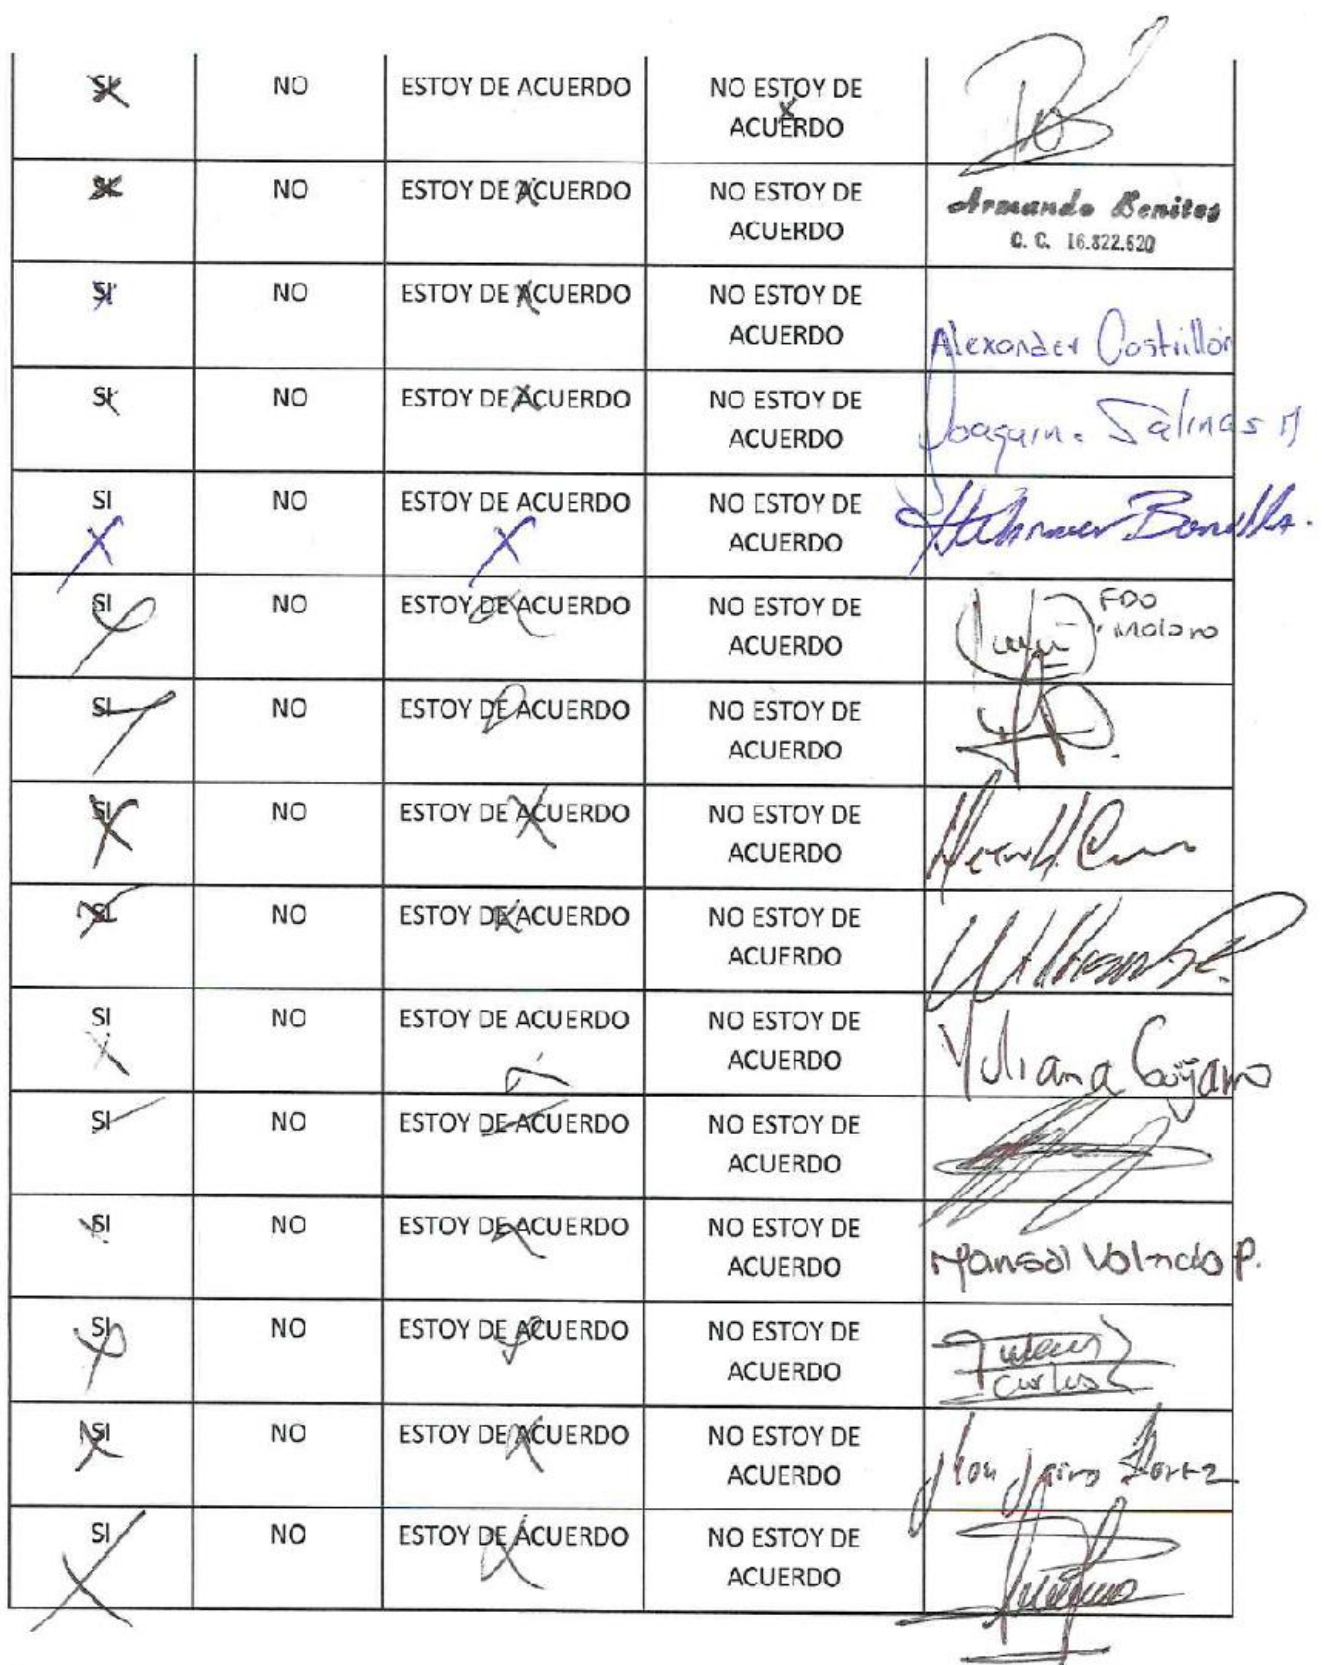 SI NO ESTOY DE ACUERDO NO ESTOY DE
ACUERDO
SI NO ESTOY DE ACUERDO NO ESTOY DE
ACUERDO
Armando Benites
C. C. 16.822.620
SI NO ESTOY DE ACUERDO NO ESTOY DE
ACUERDO
Alexander Castrillón
SI NO ESTOY DE ACUERDO NO ESTOY DE
ACUERDO
Joaquin. Salinas M
SI NO ESTOY DE ACUERDO NO ESTOY DE
ACUERDO
Bonilla.
SI NO ESTOY DE ACUERDO NO ESTOY DE
ACUERDO
FDO
SI NO ESTOY DE ACUERDO NO ESTOY DE
ACUERDO
SI NO ESTOY DE ACUERDO NO ESTOY DE
ACUERDO
SI NO ESTOY DE ACUERDO NO ESTOY DE
ACUERDO
SI NO ESTOY DE ACUERDO NO ESTOY DE
ACUERDO
Yuliana
SI NO ESTOY DE ACUERDO NO ESTOY DE
ACUERDO
SI NO ESTOY DE ACUERDO NO ESTOY DE
ACUERDO
P.
SI NO ESTOY DE ACUERDO NO ESTOY DE
ACUERDO
Carlos
SI NO ESTOY DE ACUERDO NO ESTOY DE
ACUERDO
Jairo
SI NO ESTOY DE ACUERDO NO ESTOY DE
ACUERDO